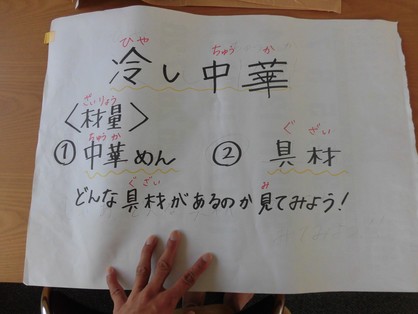 ひや ちゅう か
冷し中華
ざいりょう
〈材量〉
ちゅうか ぐ ざい
①中華めん ②具材
ぐ ざい み
どんな具材があるのか見てみよう!